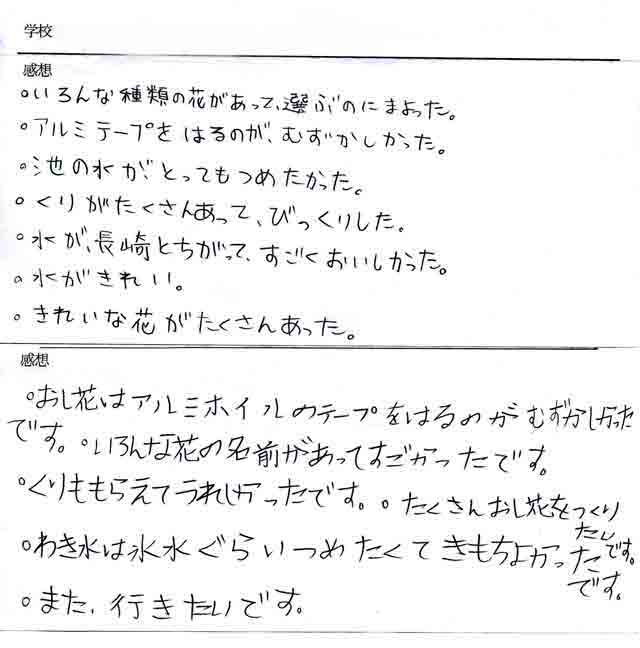 学校
感想
○いろんな種類の花があって、選ぶのにまよった。
○アルミテープをはるのが、むずかしかった。
○池の水が、とってもつめたかった。
○くりがたくさんあって、びっくりした。
○水が、長崎とちがって、すごくおいしかった。
○水がきれい。
○きれいな花がたくさんあった。
感想
○おし花はアルミホイルのテープをはるのがむずかしかった
です。○いろんな花の名前があってすごかったです。
○くりももらえてうれしかったです。○たくさんおし花をつくり
たいです。
○わき水は氷水ぐらいつめたくてきもちよかった
です。
○また、行きたいです。